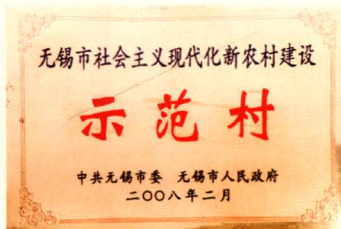 无锡市社会主义现代化新农村建设
示范村
中共无锡市委 无锡市人民政府
二〇〇八年二月